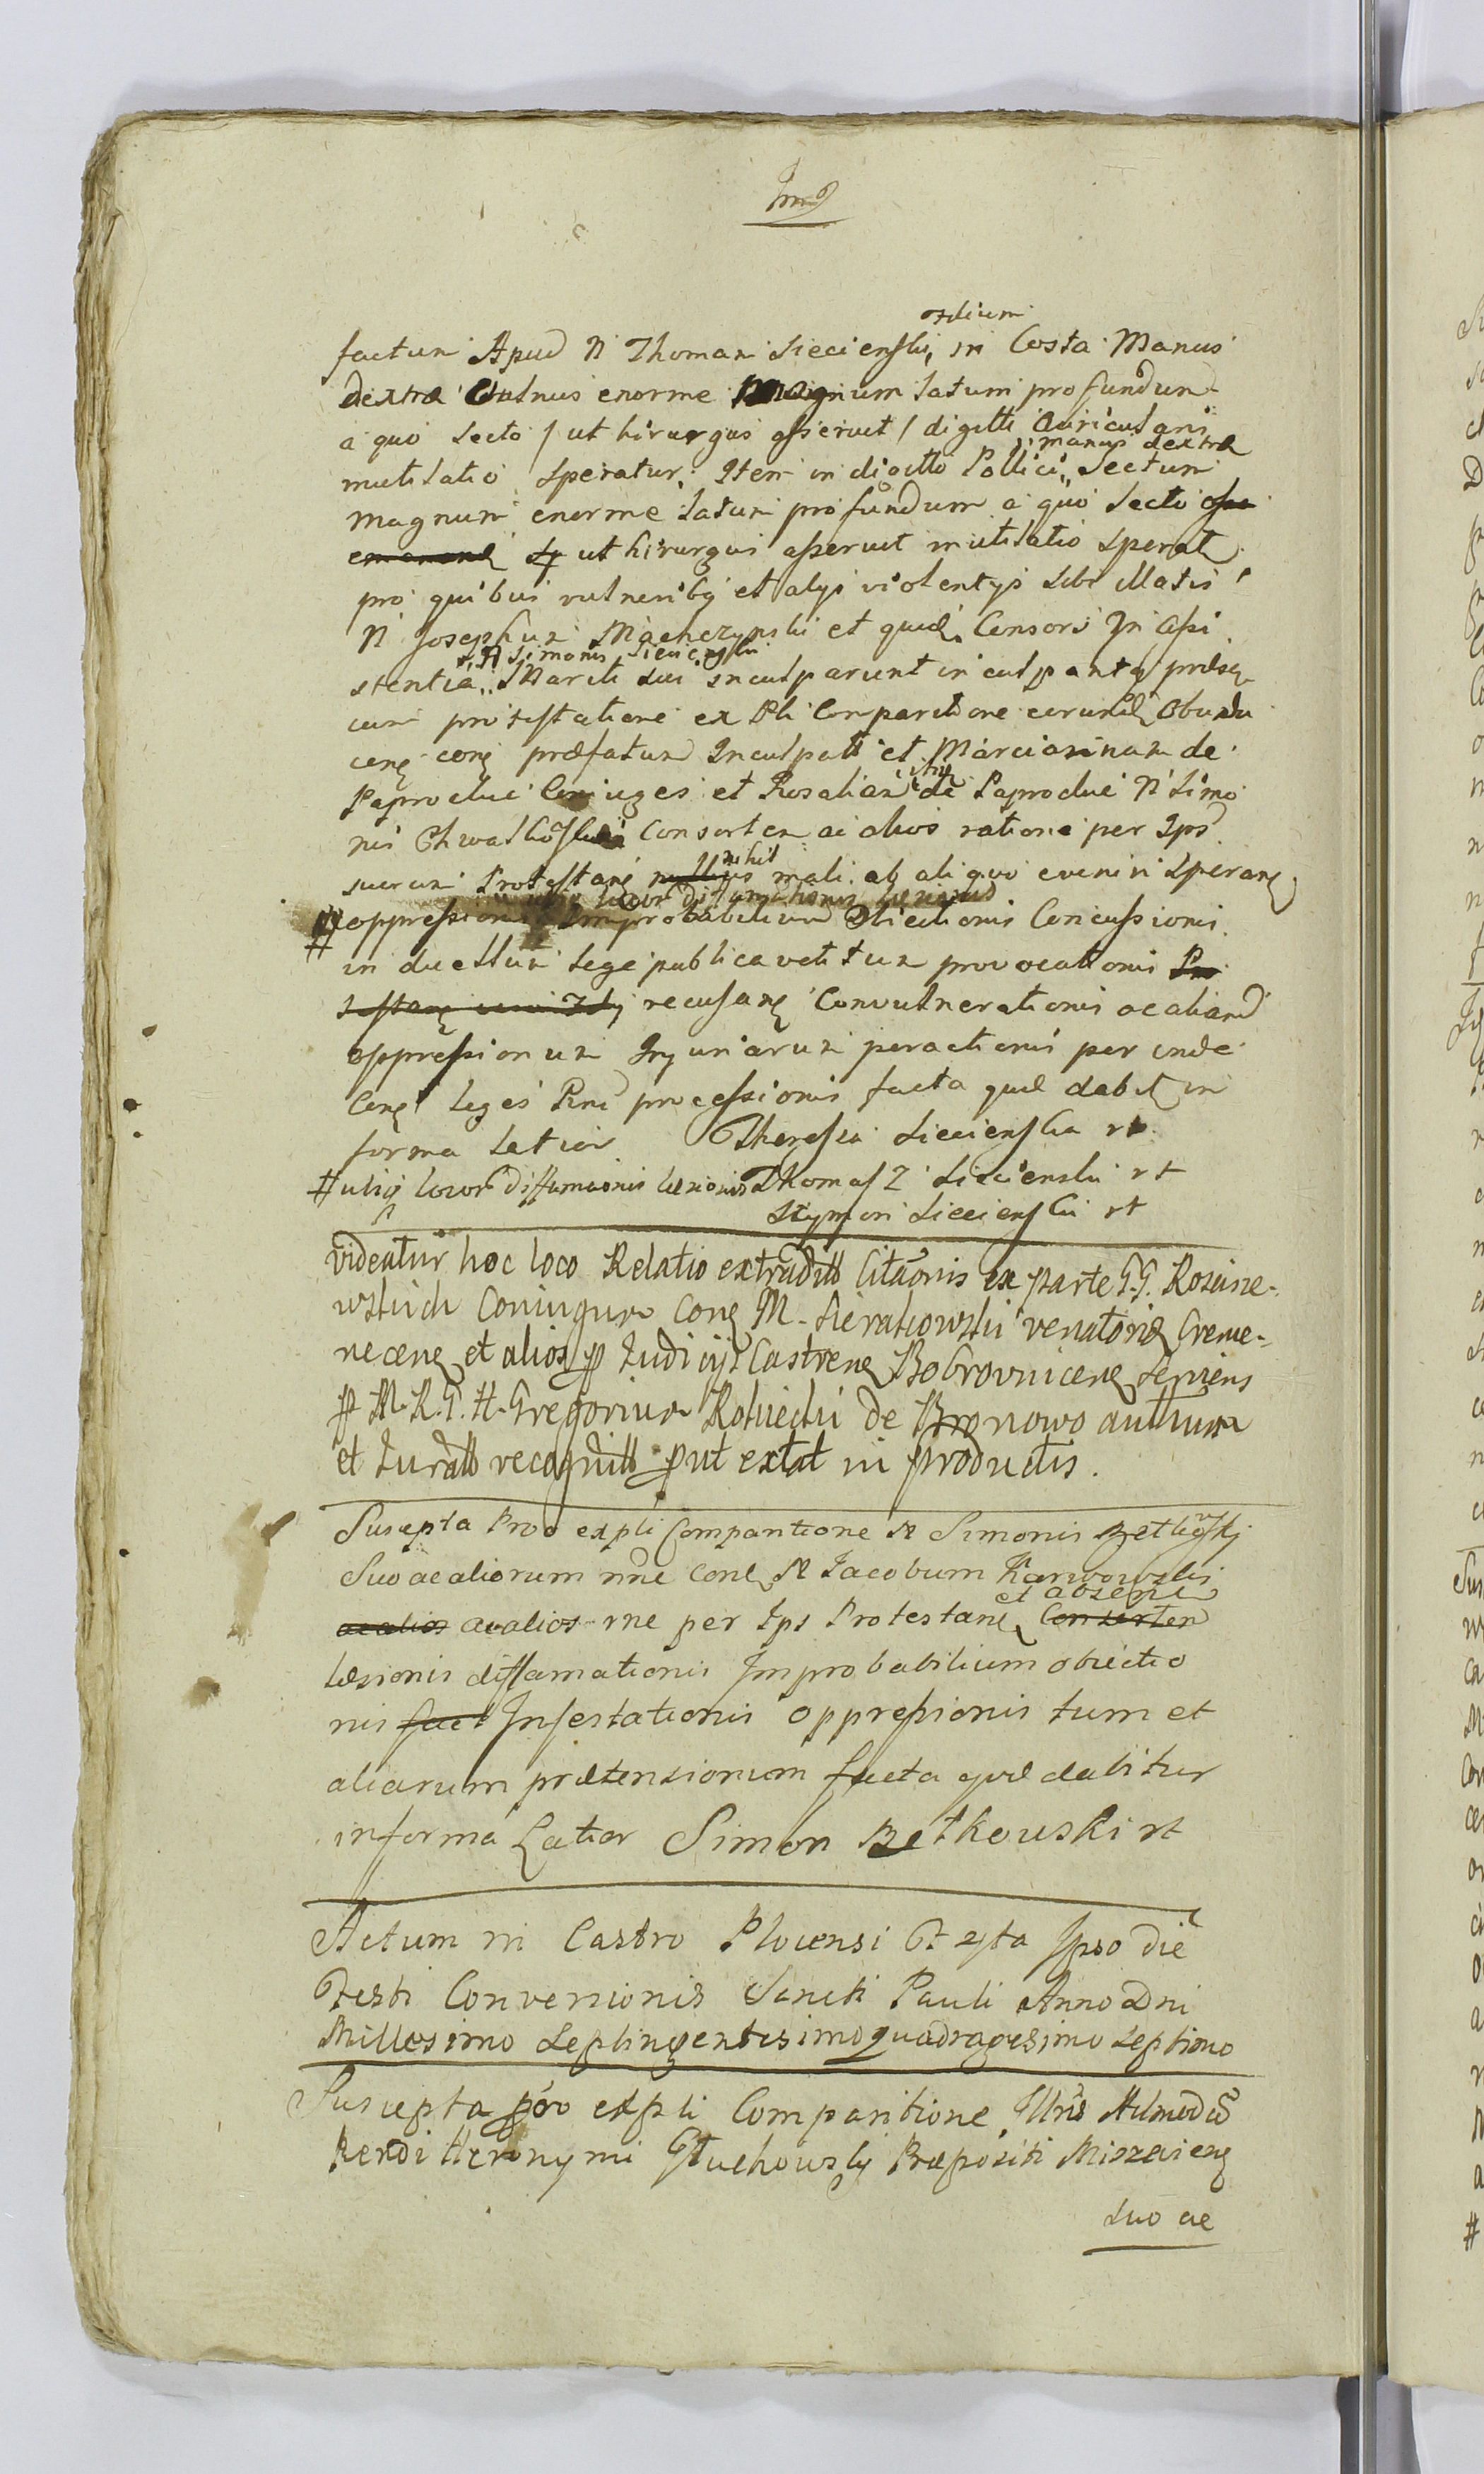 factum Apud N Thomam Siecienski, ostium in Costa Manus
dextræ Vulnus enorme Magnum latum profundum
a quo secto / ut hirurgus asseruit / digitti Auricularis
mutilatio speratur. Item in digitto Pollici manus dextræ Sectum
magnum enorme latum profundum a quo secto
ut hirurgus asseruit mutilatio sperat
pro quibus vulneribg et alys violentys sibi illatis
N Josephum Maehczynski et quæd Consors In assi
stentia, N Simonis Siecienski Mariti sui inculparunt inculpantq præsen
cum protestatione ex Pli Comparitione eorund Obundu
cenę conę præfatum Inculpatt et Marciannam de
Paprockie Coniuges et Rosaliam de Paprockie N Simo
nis Chwalkoski Consortem ac alios ratione per Ips
suorum Protestanę nullius nihil mali ab aliquo eveniri speranę
# oppressionis Improbabilium Obiectionis Concussionis
in duellum lege publica vetitum provocationis Pro
recusanę Convulnerationis ac aliard
oppressionum Injuriarum peractionis per inde
Cenę leges Pene processionis facta quæ dabit in
forma latior Theressa Siecienska rt
# utię locor diffamaonis læsionis Thomas Z Siecienski rt
Szymon Siecienski rt
videatur hoc loco Relatio extraditt Citaonis ex parte G.G. Rosinne-
wskich Coniugum Conę M. Sierakowski venatorię Creme-
necenę et alios p Judicys Castrenę Bobrovnicenę serviens
p M. R. G. H. Gregorium Rokiecki de Bronowo authum
et Juratt recognitt put extat in productis.
Suscepta Pro expli Comparitione N Simonis Betkowski
Suo ac aliorum nne Conę N Jacobum Karwowski
ac alios ac alios rne per Ips Protestanę et absenę Consorten
læsionis diffamationis Improbabilium obiectio
nis fact Infestationis oppressionis tum et
aliarum prætensionum facta quæ dabitur
in forma Latior Simon Betkowski rt
Actum in Castro Plocensi Ferta Ipso die
Festi Conversionis Sancti Pauli Anno Dni
Millesimo Septingentesimo quadragesimo Septimo
Suscepta pro expli Comparitione Illris Admodū
Rendi Heronymi Głuchowsky Præpositi Miszeienę
suo ac